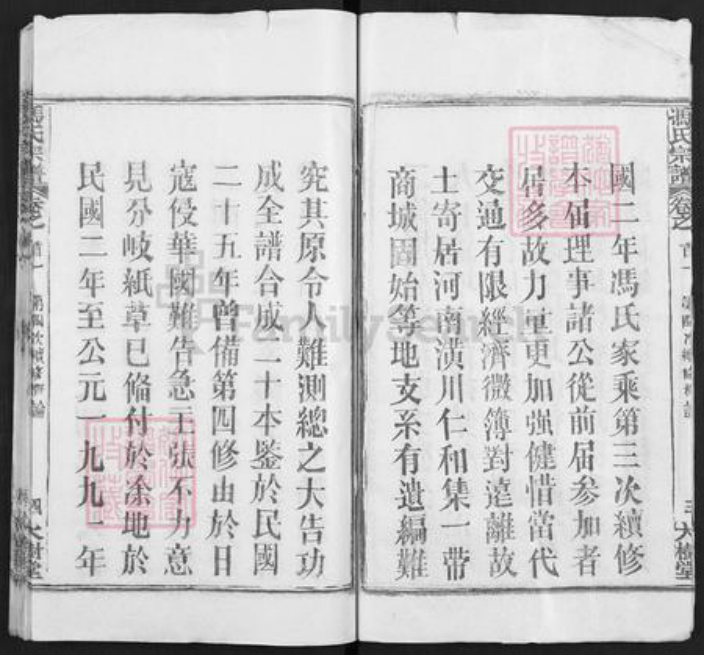 馮氏宗譜
卷之
首一
三
大樹堂
國二年馮氏家乘第三次續修
本届理事諸公從前届参加者
居多故力量更加强健惜當代
交通有限經濟微簿對遠離故
土寄居河南潢川仁和集一帶
商城固始等地支系有遺編難
究其原令人難測總之大告功
成全譜合成二十本鉴於民國
二十五年曾備第四修由於日
寇侵華國難告急主張不力意
見分岐紙草已俻付於余地於
民國二年至公元一九九一年
馮氏宗譜
卷之
首一
四
大樹堂
FamilySearch